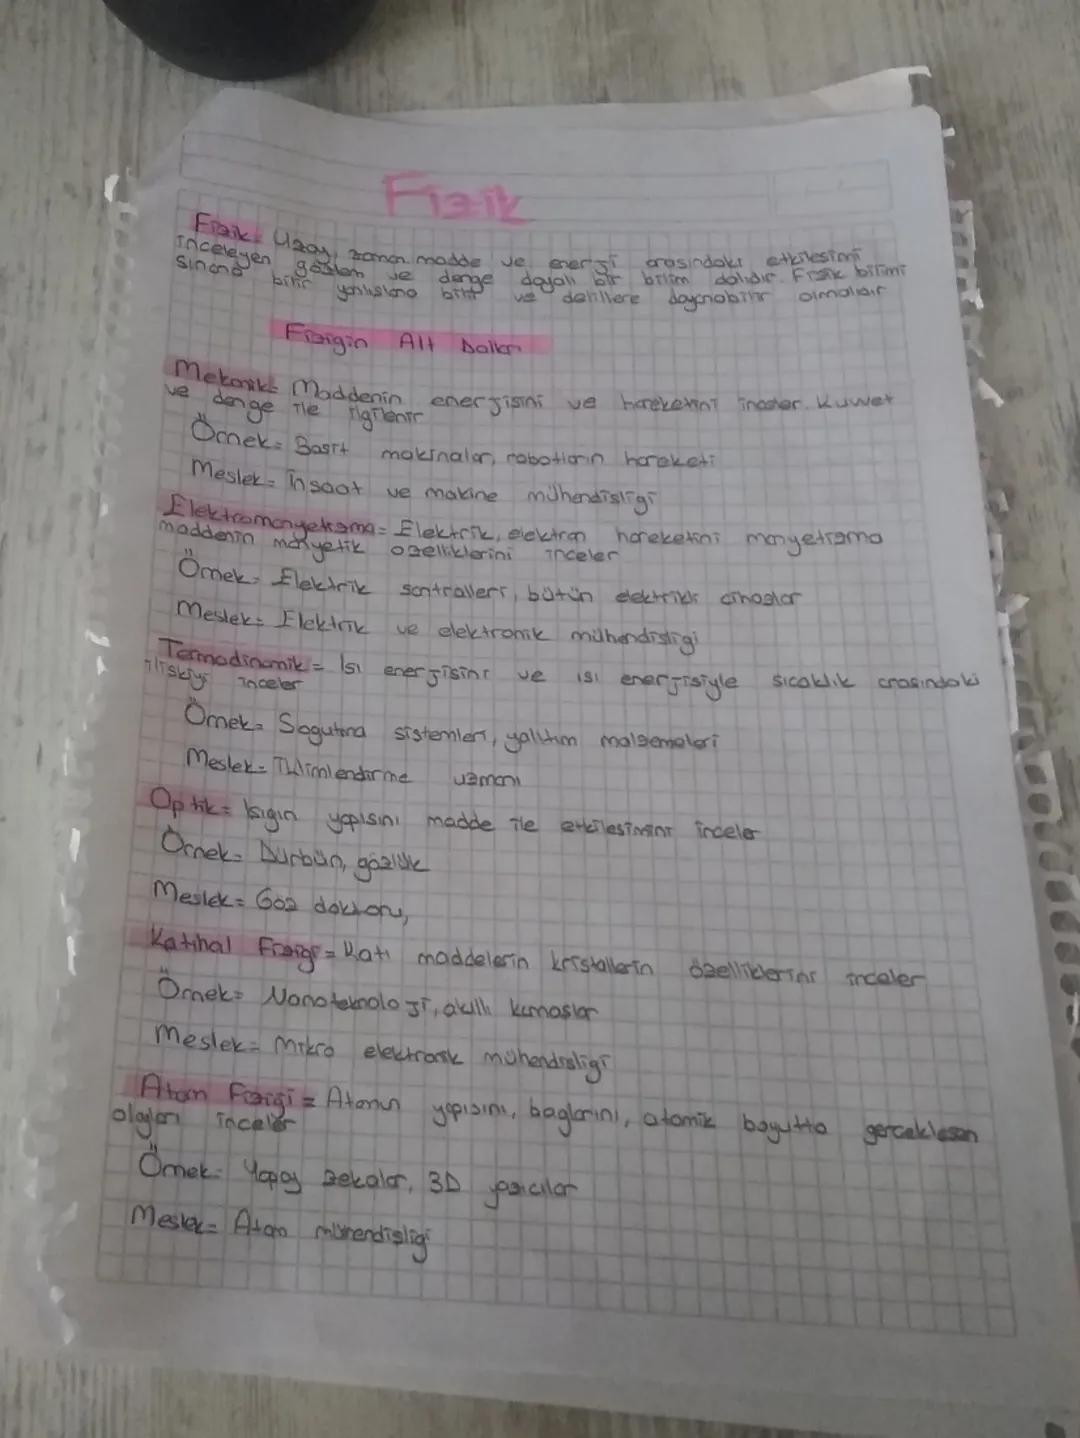 Fizik
Fizik= Uzay, zaman madde ve enerji arasındaki etkilesimi
inceleyen gözlem ve denge dayalı bir bilim dalıdır. Fizik bilimi
sınana bilir yanlıslana bilir ve delillere dayanabilir olmalıdır
Fiziğin Alt Dalları
Mekanik= Maddenin enerjisini ve hareketini inceler. Kuvvet
ve denge ile ilgilenir
Örnek= Basit makinalar, robotların hareketi
Meslek= İnsaat ve makine mühendisligi
Elektromanyetizma= Elektrik, elektron hareketini manyetizma
maddenin manyetik özelliklerini inceler
Örnek= Elektrik santralleri, bütün elektrikli cihazlar
Meslek= Elektrik ve elektronik mühendisligi
Termodinamik= Isı enerjisini ve ısı enerjisiyle sıcaklık arasındaki
iliskiyi inceler
Örnek= Sogutma sistemleri, yalıtım malzemeleri
Meslek= İklimlendirme uzmanı
Optik= Isıgın yapısını madde ile etkilesimini inceler
Örnek= Dürbün, gözlük
Meslek= Göz doktoru,
Katıhal Fizigi= Katı maddelerin kristallerin özelliklerini inceler
Örnek= Nanoteknoloji, akıllı kumaslar
Meslek= Mikro elektronik mühendisligi
Atom Fizigi= Atomun yapısını, baglarını, atomik boyutta gerceklesen
olayları inceler
Örnek= Yapay zekalar, 3D yazıcılar
Meslek= Atom mühendisligi